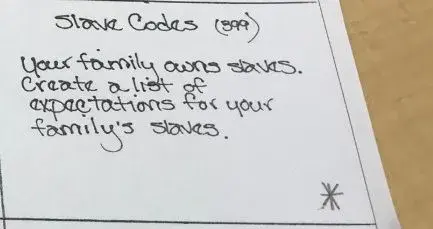 Slave Codes (399)
Your family owns slaves.
Create a list of
expectations for your
family's slaves.
*